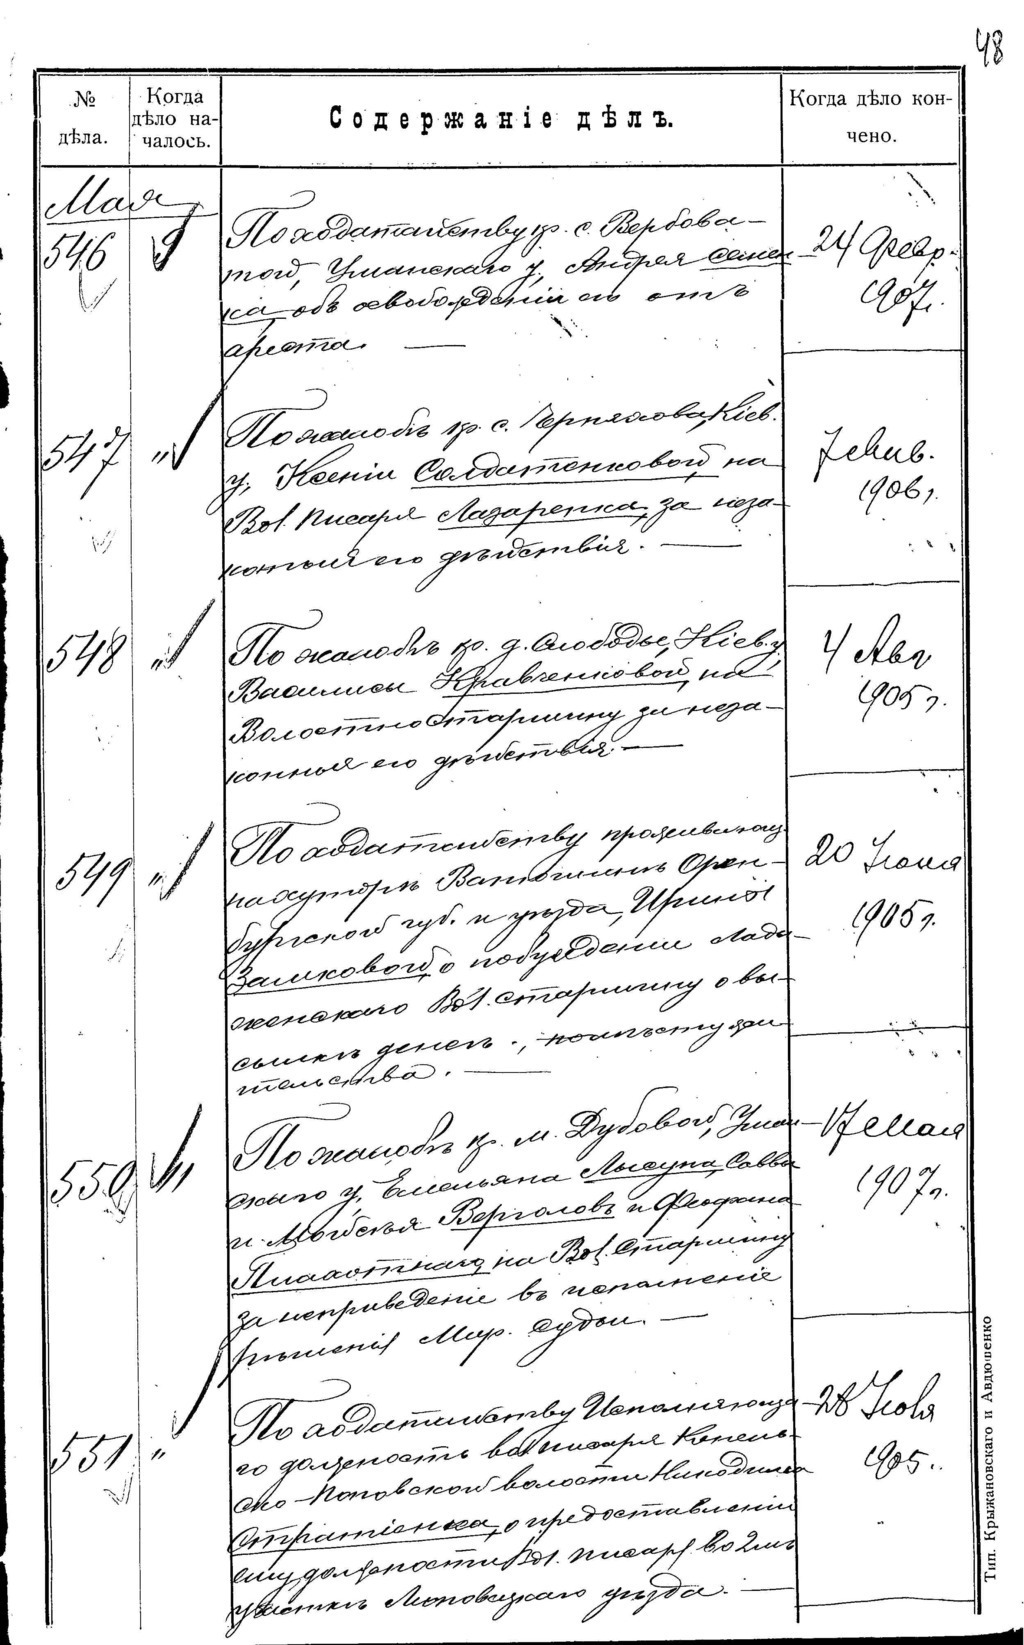 48
№ дѣла.
Когда дѣло на-
чалось.
Содержаніе дѣлъ.
Когда дѣло кон-
чено.
Мая
546 9
По ходатайству кр. с. Вербова-
той, Уманскаго у., Андрея
ка объ освобожденіи его отъ
ареста. —
24 Февр.
1907г.
547 "
По жалобѣ кр. с. Черняхова, Кіев.
у. Ксеніи Солдатенковой, на
Вол. Писаря Лазаренка, за неза-
конныя его дѣйствія. —
7 Янв.
1906 г.
548 "
По жалобѣ кр. д. Слободы, Кіев. у.
Василисы Кравченковой, на
Волостно Старшину за неза-
конныя его дѣйствія. —
4 Авг
1905 г.
549 "
По ходатайству проживающ.
на хуторѣ Оренъ-
бургской губ. и уѣзда, Ирины
Замковой, о побужденіи Лады-
женскаго Вол. Старшину о вы-
сылкѣ денегъ., по мѣсту жи-
тельства. —
20 Іюня
1905 г.
550 "
По жалобѣ кр. м. Дубовой, Уман-
скаго у. Емельяна Лысуна, Саввы
и Мойсѣя Верголовъ и Феофана
на Вол. Старшину
за неприведеніе въ исполненіе
рѣшенія Мир. Судьи. —
17 Мая
1907 г.
551 "
По ходатайству Исполняюща-
го должность вол писаря Конель-
ско-Поповской волости Никодима
о предоставленіи
ему должности Вол. писаря во 2мъ
участкѣ Липовецкаго уѣзда. —
28 Іюля
1905.
Тип. Крыжановскаго и Авдюшенко